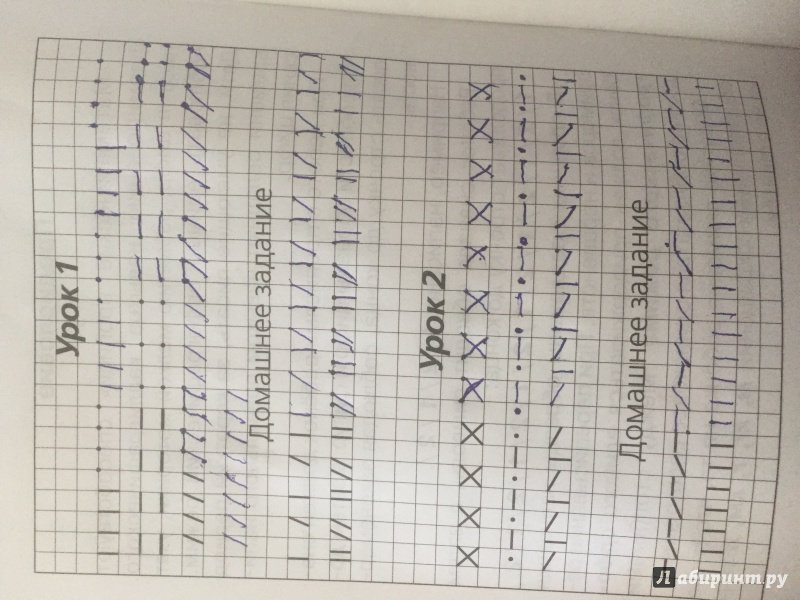 Урок 1
Домашнее задание
Урок 2
Домашнее задание
Лабиринт.ру